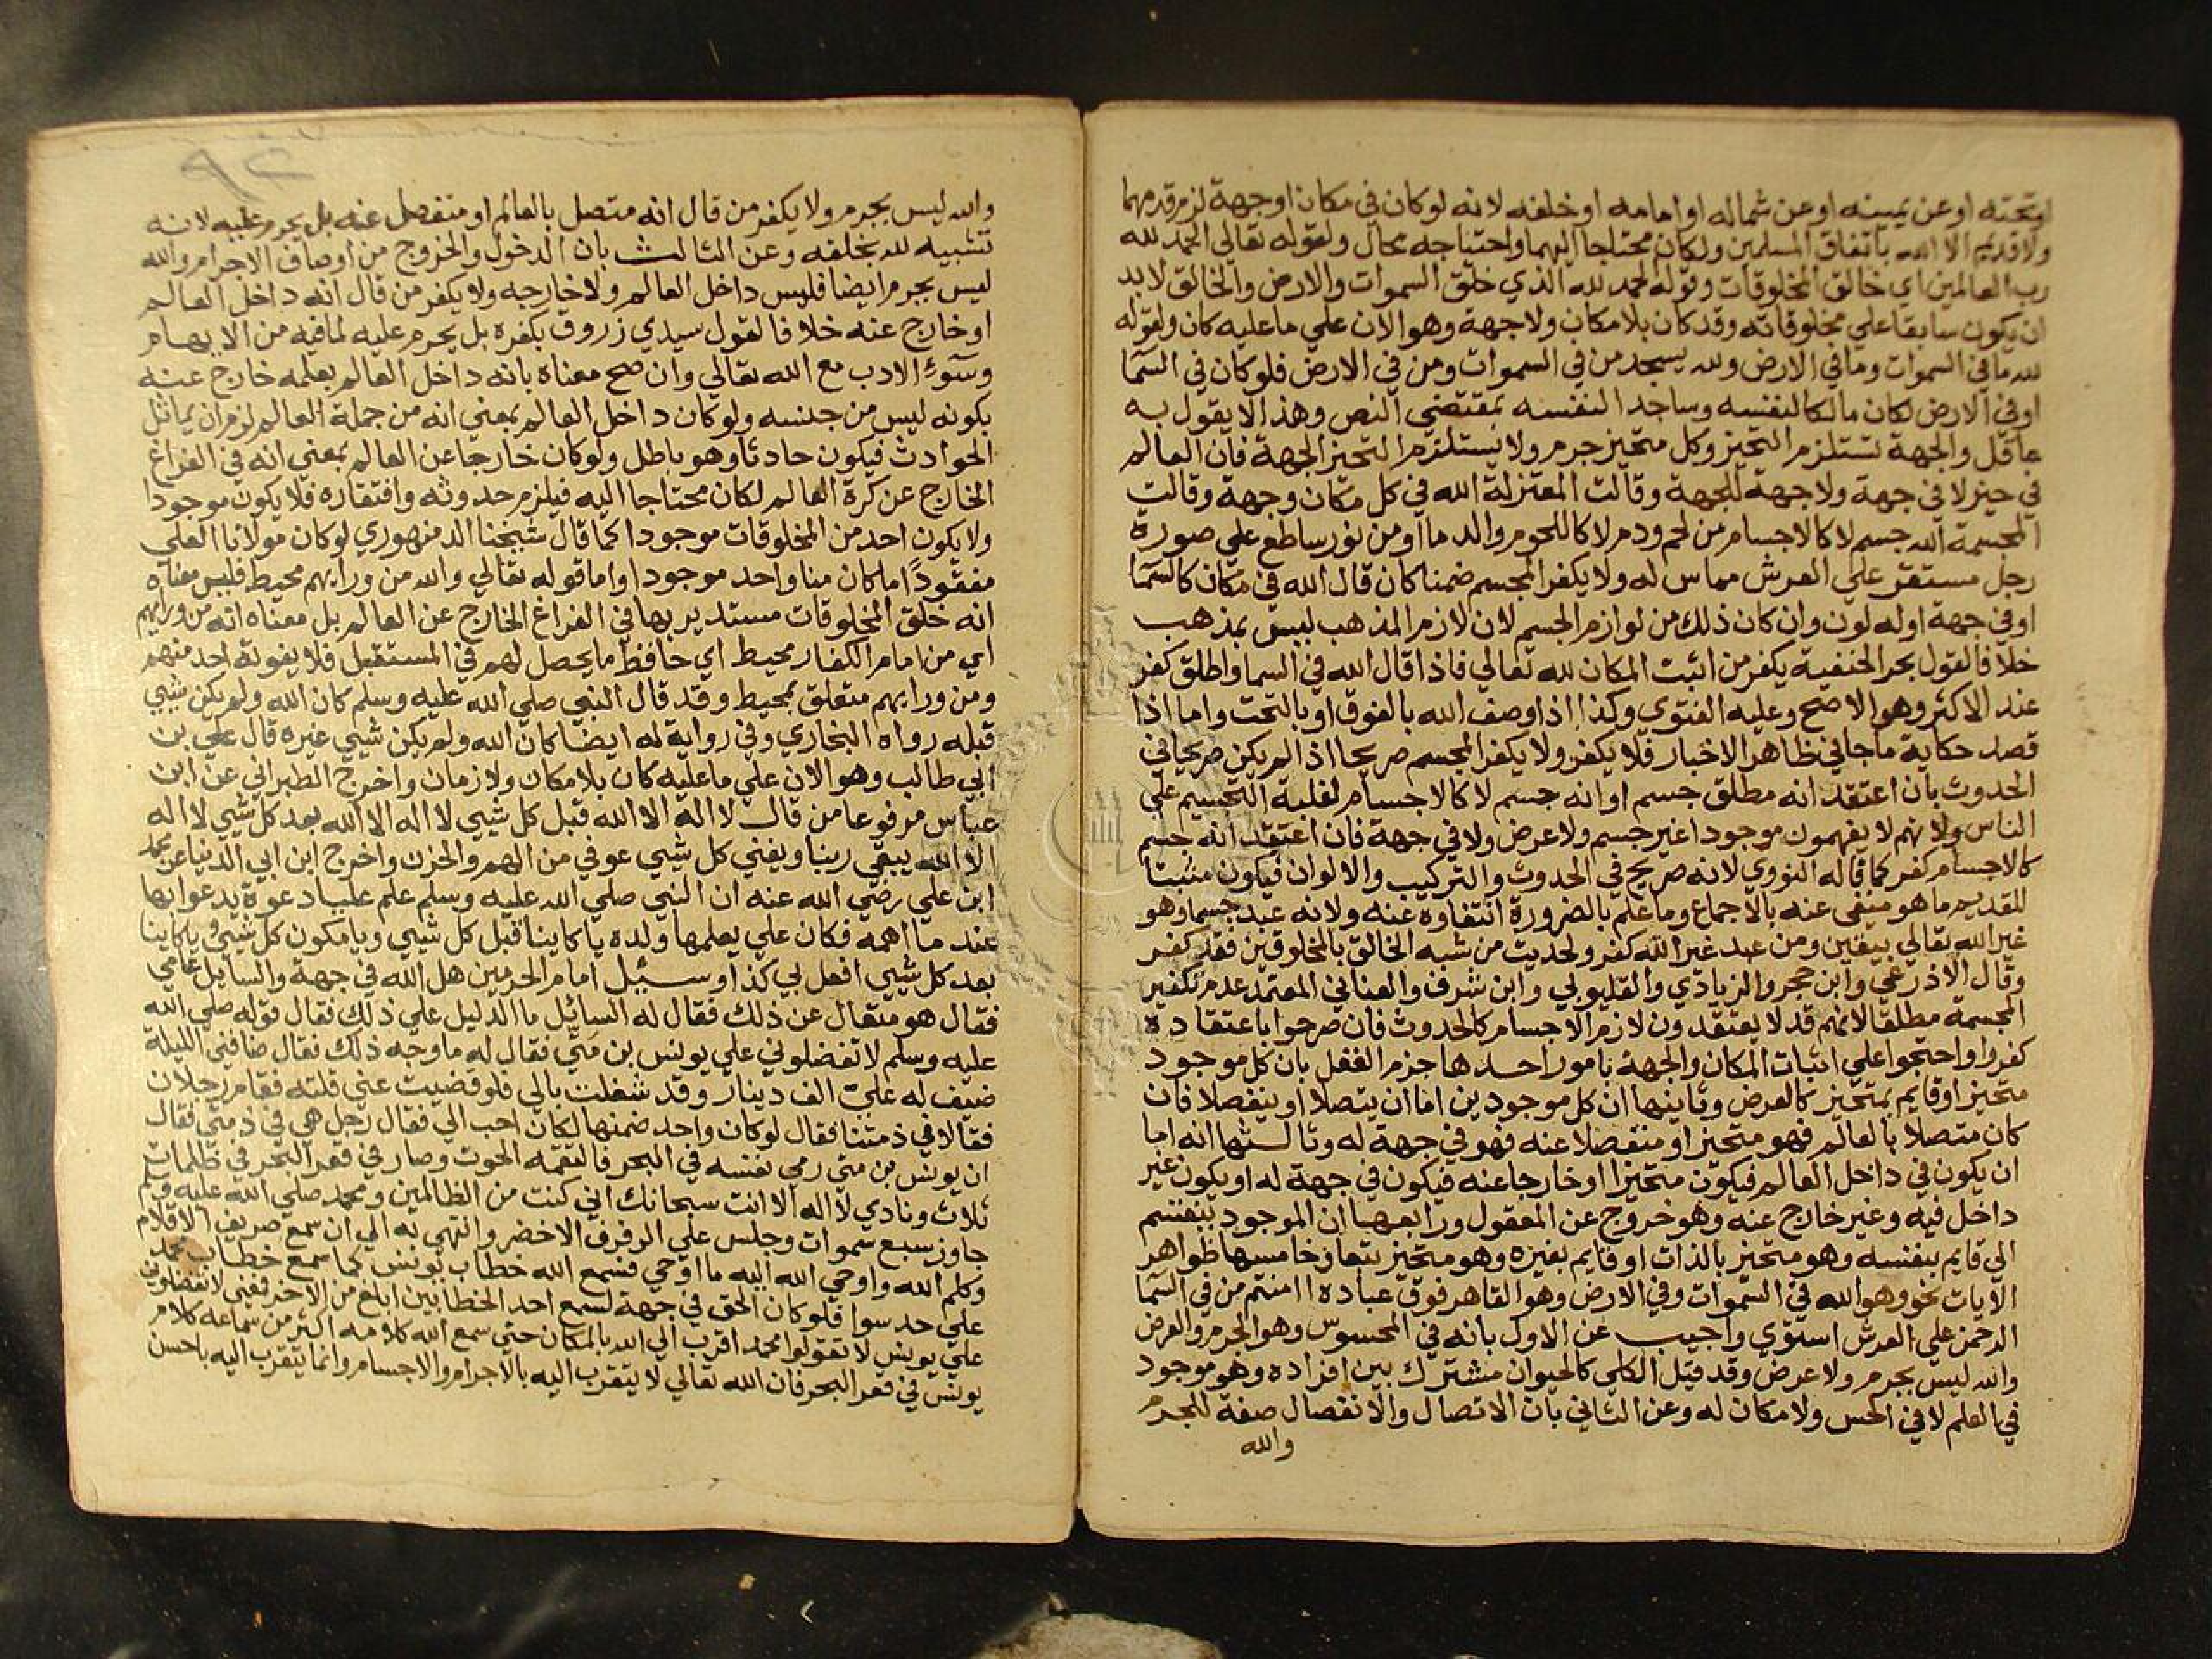 او تحته او عن يمينه او عن شماله او امامه او خلفه لانه لو كان في مكان او جهة لزم قدمهما
ولا قديم الا الله باتفاق المسلمين ولكان محتاجا اليهما واحتياجه محال ولقوله تعالي الحمد لله
رب العالمين اي خالق المخلوقات وقوله الحمد لله الذي خلق السموات والارض والخالق لا بد
ان يكون سابقا علي مخلوقاته وقد كان بلا مكان ولا جهة وهو الان علي ما عليه كان ولقوله
لله ما في السموات وما في الارض ولله يسجد من في السموات ومن في الارض فلو كان في السما
او في الارض لكان مالكا لنفسه وساجدا لنفسه بمقتضي النص وهذا لا يقول به
عاقل والجهة تستلزم التحيز وكل متحيز جرم ولا يستلزم التحيز الجهة فان العالم
في حيز لا في جهة ولا جهة للجهة وقالت المعتزلة الله في كل مكان وجهة وقالت
المجسمة الله جسم لا كالاجسام من لحم ودم لا كاللحوم والدما او من نور ساطع علي صورة
رجل مستقر علي العرش مماس له ولا يكفر المجسم ضمنا كان قال الله في مكان كالسما
او في جهة او له لون وان كان ذلك من لوازم الجسم لان لازم المذهب ليس بمذهب
خلافا لقول بحر الحنفية يكفر من اثبت المكان لله تعالي فاذا قال الله في السما واطلق كفر
عند الاكثر وهو الاصح وعليه الفتوي وكذا اذا وصف الله بالفوق او بالتحت واما اذا
قصد حكاية ما جا في ظاهر الاخبار فلا يكفر ولا يكفر المجسم صريحا اذا لم يكن صريحا في
الحدوث بان اعتقد انه مطلق جسم او انه جسم لا كالاجسام لغلبة التجسيم علي
الناس ولانهم لا يفهمون موجودا غير جسم ولا عرض ولا في جهة فان اعتقد انه جسم
كالاجسام كفر كما قاله النووي لانه صريح في الحدوث والتركيب والالوان فيكون مثبتا
للقديم ما هو منفي عنه بالاجماع وما علم بالضرورة انتفاوه عنه ولانه عبد جسما وهو
غير الله تعالي بيقين ومن عبد غير الله كفر ولحديث من شبه الخالق بالمخلوقين فقد كفر
وقال الاذرعي وابن حجر والزيادي والقليوبي وابن شرف والعناني المعتمد عدم تكفير
المجسمة مطلقا لانهم قد لا يعتقدون لازم الاجسام كالحدوث فان صرحوا باعتقاده
كفروا واحتجوا علي اثبات المكان والجهة بامور احدها جزم العقل بان كل موجود
متحيز او قايم بمتحيز كالعرض وثانيها ان كل موجودين اما ان يتصلا او ينفصلا فان
كان متصلا بالعالم فهو متحيز او منفصلا عنه فهو في جهة له وثالثها انه اما
ان يكون في داخل العالم فيكون متحيزا او خارجا عنه فيكون في جهة له او يكون غير
داخل فيه وغير خارج عنه وهو خروج عن المعقول ورابعها ان الموجود ينقسم
الي قايم بنفسه وهو متحيز بالذات او قايم بغيره وهو متحيز تبعا وخامسها ظواهر
الايات نحو وهو الله في السموات وفي الارض وهو القاهر فوق عباده اامنتم من في السما
الرحمن علي العرش استوي واجيب عن الاول بانه في المحسوس وهو الجرم والعرض
والله ليس بجرم ولا عرض وقد قيل الكلي كالحيوان مشترك بين افراده وهو موجود
في العلم لا في الحس ولا مكان له وعن الثاني بان الاتصال والانفصال صفة للجرم
والله
٩٢
والله ليس بجرم ولا يكفر من قال انه متصل بالعالم او منفصل عنه بل يحرم عليه لانه
تشبيه لله بخلقه وعن الثالث بان الدخول والخروج من اوصاف الاجرام والله
ليس بجرم ايضا فليس داخل العالم ولا خارجه ولا يكفر من قال انه داخل العالم
او خارج عنه خلافا لقول سيدي زروق بكفره بل يحرم عليه لما فيه من الايهام
وسوء الادب مع الله تعالي وان صح معناه بانه داخل العالم بعلمه خارج عنه
بكونه ليس من جنسه ولو كان داخل العالم بمعني انه من جملة العالم لزم ان يماثل
الحوادث فيكون حادثا وهو باطل ولو كان خارجا عن العالم بمعني انه في الفراغ
الخارج عن كرة العالم لكان محتاجا اليه فيلزم حدوثه وافتقاره فلا يكون موجودا
ولا يكون احد من المخلوقات موجودا كما قال شيخنا الدمنهوري لو كان مولانا العلي
مفقودا ما كان منا واحد موجودا واما قوله تعالي والله من ورايهم محيط فليس معناه
انه خلق المخلوقات مستدير بها في الفراغ الخارج عن العالم بل معناه انه من ورايهم
اي من امام الكفار محيط اي حافظ ما يحصل لهم في المستقبل فلا يفوته احد منهم
ومن ورايهم متعلق بمحيط وقد قال النبي صلي الله عليه وسلم كان الله ولم يكن شيي
قبله رواه البخاري وفي رواية له ايضا كان الله ولم يكن شيي غيره قال علي بن
ابي طالب وهو الان علي ما عليه كان بلا مكان ولا زمان واخرج الطبراني عن ابن
عباس مرفوعا من قال لا اله الا الله قبل كل شيي لا اله الا الله بعد كل شيي لا اله
الا الله يبقي ربنا ويفني كل شيي عوفي من الهم والحزن واخرج ابن ابي الدنيا عن محمد
ابن علي رضي الله عنه ان النبي صلي الله عليه وسلم علم عليا دعوة يدعوا بها
عند ما اهمه فكان علي يعلمها ولده يا كاينا قبل كل شيي ويا مكون كل شيي ويا كاينا
بعد كل شيي افعل بي كذا وسئيل امام الحرمين هل الله في جهة والسايل عامي
فقال هو متعال عن ذلك فقال له السائل ما الدليل علي ذلك فقال قوله صلي الله
عليه وسلم لا تفضلوني علي يونس بن متي فقال له ما وجه ذلك فقال ضافني الليلة
ضيف له علي الف دينار وقد شغلت بالي فلو قضيت عني قلته فقام رجلان
فقالا في ذمتنا فقال لو كان واحد ضمنها لكان احب الي فقال رجل هي في ذمتي فقال
ان يونس بن متي رمي نفسه في البحر فالتقمه الحوت وصار في قعر البحر في ظلمات
ثلاث ونادي لا اله الا انت سبحانك اني كنت من الظالمين ومحمد صلي الله عليه وسلم
جاوز سبع سموات وجلس علي الرفرف الاخضر وانتهي به الي ان سمع صريف الاقلام
وكلم الله واوحي الله اليه ما اوحي فسمع الله خطاب يونس كما سمع خطاب محمد
علي حد سوا فلو كان الحق في جهة لسمع احد الخطابين ابلغ من الاخر فمعني لا تفضلوني
علي يونس لا تقولوا محمد اقرب الي الله بالمكان حتي سمع الله كلامه اكثر من سماعه كلام
يونس في قعر البحر فان الله تعالي لا يتقرب اليه بالاجرام والاجسام وانما يتقرب اليه باحسن